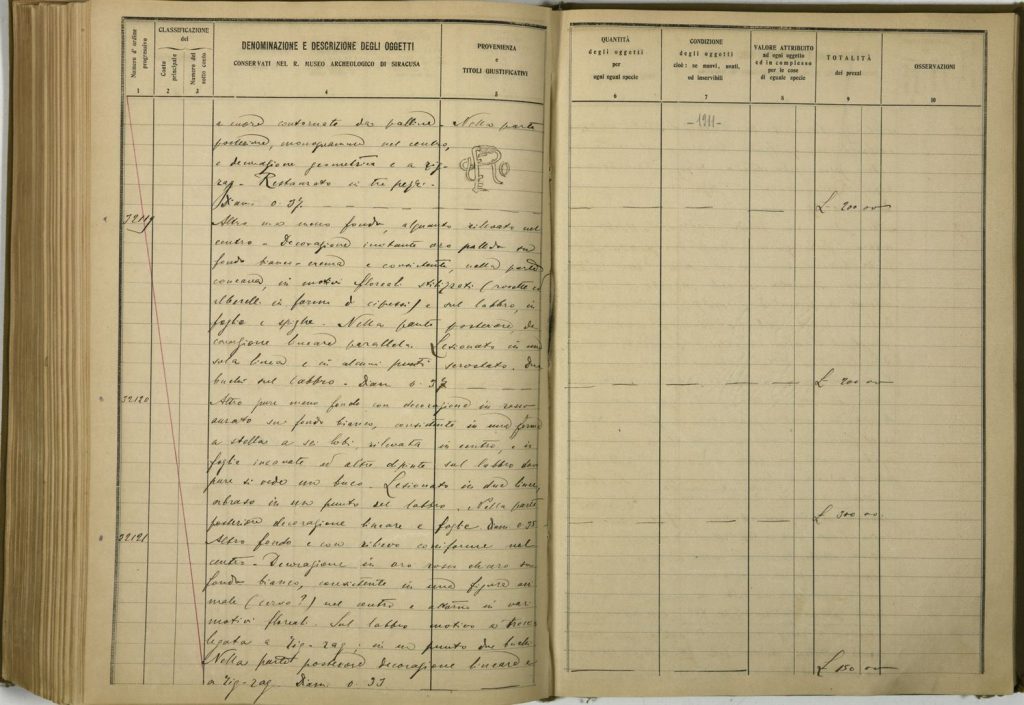 Numero d'ordine progressivo
CLASSIFICAZIONE
del
Conto principale
Numero del sotto conto
DENOMINAZIONE E DESCRIZIONE DEGLI OGGETTI
CONSERVATI NEL R. MUSEO ARCHEOLOGICO DI SIRACUSA
PROVENIENZA
e
TITOLI GIUSTIFICATIVI
1 2 3 4 5
a cuore contornate da palline. Nella parte
posteriore, monogramma nel centro,
e decorazione geometrica e a zig-
zag. Restaurato in tre pezzi.
Diam. 0.37
32119
Altro ma meno fondo, alquanto rilevato nel
centro. Decorazione imitante oro pallido su
fondo bianco-crema e consistente, nella parte
concava, in motivi floreali stilizzati (rosette ed
alberelli in forma di cipressi) e sul labbro, in
foglie e spighe. Nella parte posteriore, de-
corazione lineare parallela. Lesionato in una
sola linea e in alcuni punti scrostato. Due
buchi sul labbro. Diam. 0.37
32120
Altro pure meno fondo con decorazione in rosso
aurato su fondo bianco, consistente in una forma
a stella a sei lobi rilevata in centro, e in
foglie incavate ed altre dipinte sul labbro dove
pure si vede un buco. Lesionato in due linee,
abraso in un punto del labbro. Nella parte
posteriore decorazione lineare e foglie Diam. 0.38
32121
Altro fondo e con rilievo coniforme nel
centro. Decorazione in oro rosso chiaro su
fondo bianco, consistente in una figura ani-
male (cervo?) nel centro e attorno in vari
motivi floreali. Sul labbro motivo a
legata a zig-zag; in un punto due buchi.
Nella parte posteriore decorazione lineare e
a zig-zag. Diam. 0.33
QUANTITÀ
degli oggetti
per
ogni egual specie
CONDIZIONE
degli oggetti
cioè: se nuovi, usati,
od inservibili
VALORE ATTRIBUITO
ad ogni oggetto
ed in complesso
per le cose
di eguale specie
TOTALITÀ
dei prezzi
OSSERVAZIONI
6 7 8 9 10
-1911-
L. 200 00
L. 200 00
L. 300 00
L. 150 00